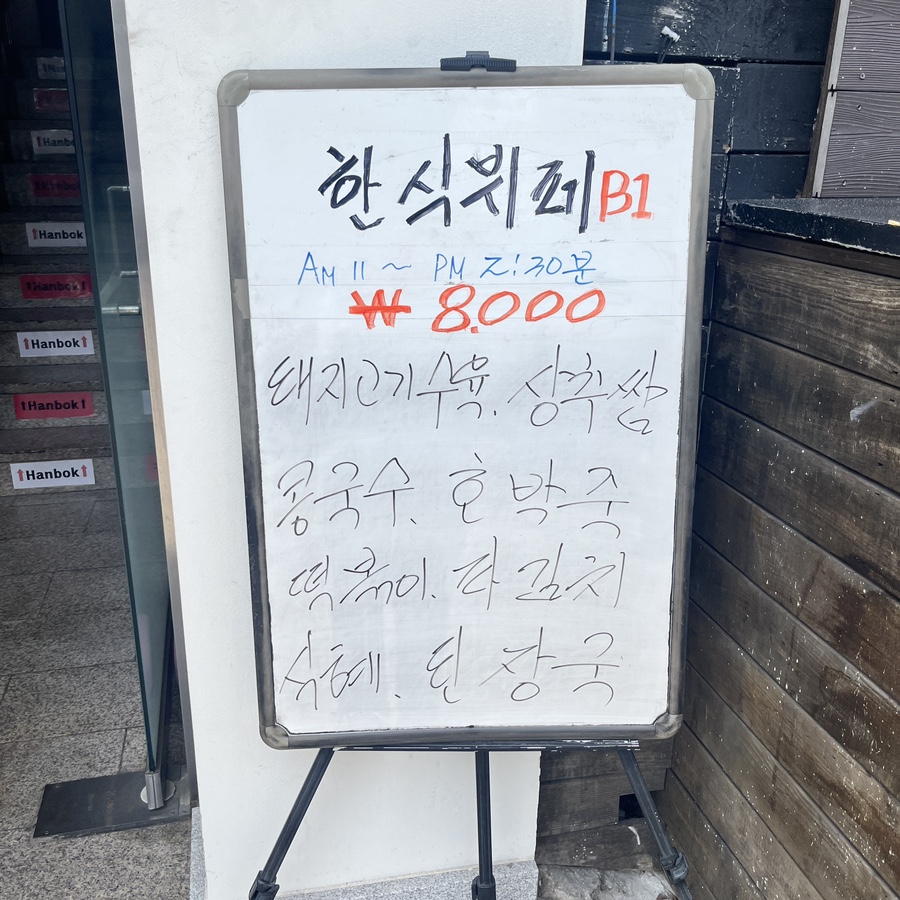 한식뷔페 B1
AM 11 ~ PM 2:30분
₩ 8.000
돼지고기수육. 상추쌈
콩국수. 호박죽
떡볶이. 파김치
식혜. 된장국
Hanbok
Hanbok
Hanbok
Hanbok
Hanbok
Hanbok
Hanbok